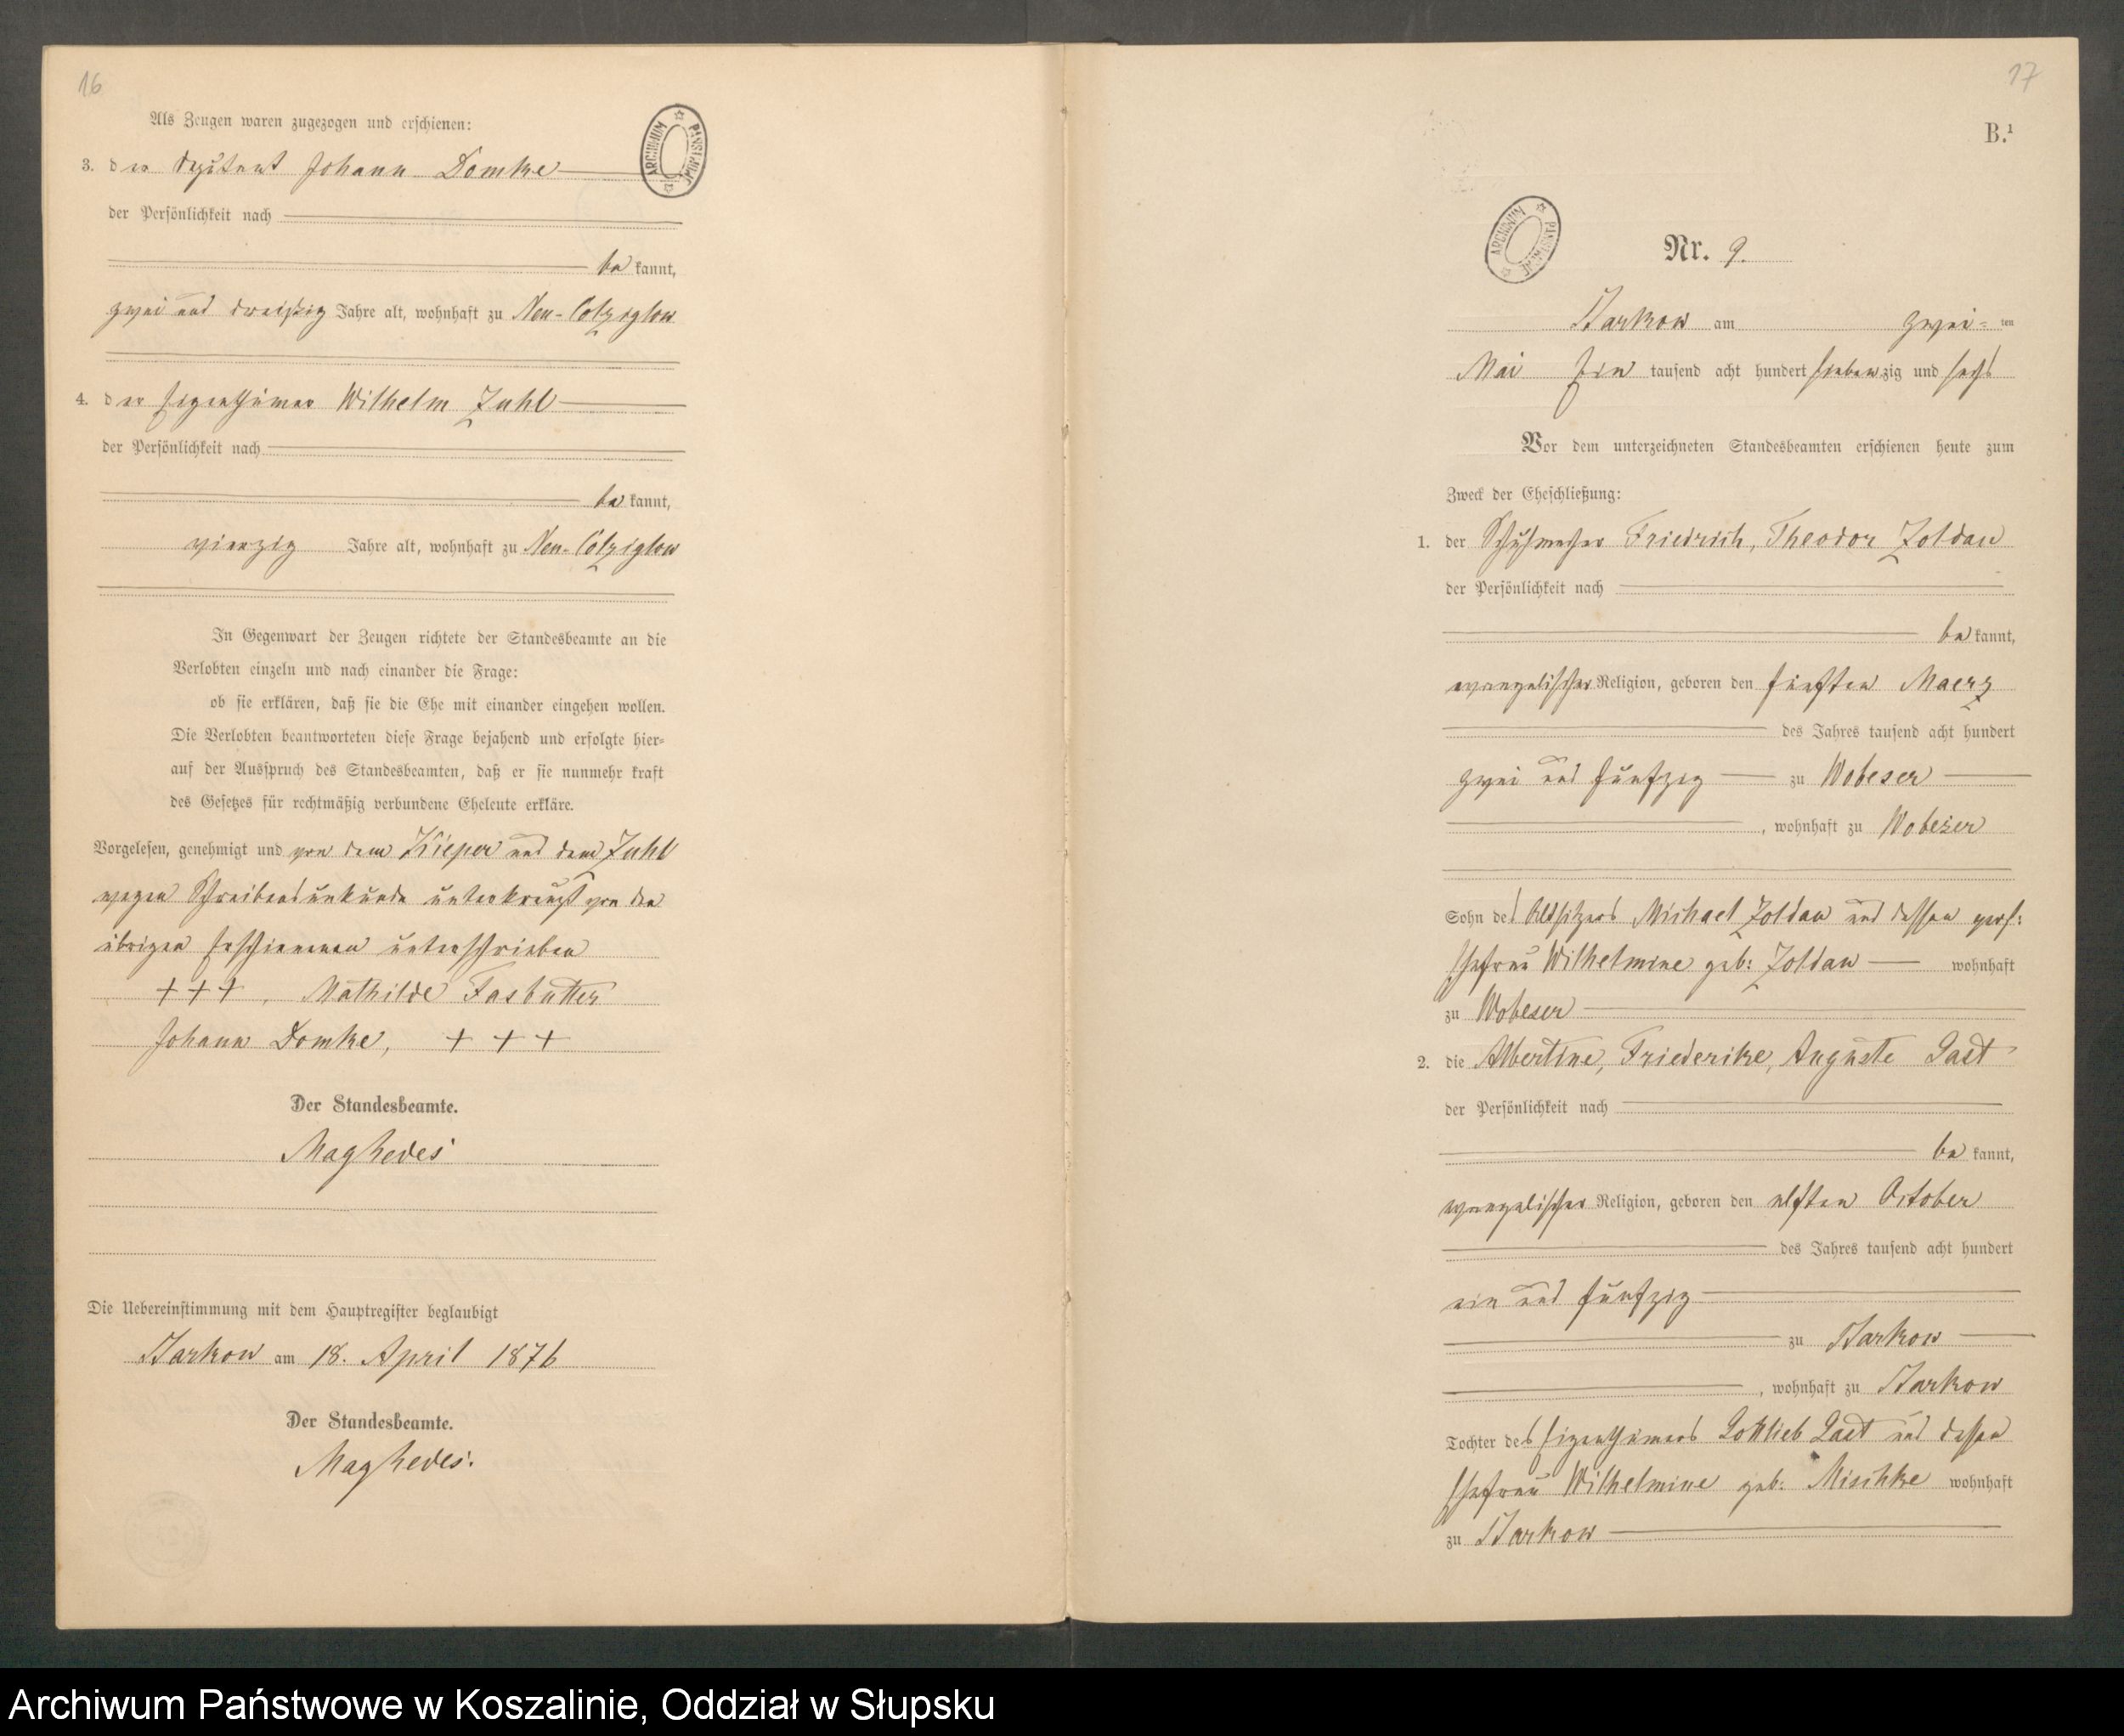 16
Als Zeugen waren zugezogen und erschienen:
3. der Deputant Johann Domke
der Persönlichkeit nach
be kannt,
zwei und dreißig Jahre alt, wohnhaft zu Neu-Colziglow
4. der Eigenthümer Wilhelm Zuhl
der Persönlichkeit nach
be kannt,
vierzig Jahre alt, wohnhaft zu Neu-Colziglow
In Gegenwart der Zeugen richtete der Standesbeamte an die
Verlobten einzeln und nach einander die Frage:
ob sie erklären, daß sie die Ehe mit einander eingehen wollen.
Die Verlobten beantworteten diese Frage bejahend und erfolgte hier=
auf der Ausspruch des Standesbeamten, daß er sie nunmehr kraft
des Gesetzes für rechtmäßig verbundene Eheleute erkläre.
Vorgelesen, genehmigt und von dem Kieper und dem Zuhl
wegen Schreibensunkunde unterkreuzt von den
übrigen Erschienenen unterschrieben
+++, Mathilde Fasbutter
Johann Domke, +++
Der Standesbeamte.
Die Uebereinstimmung mit dem Hauptregister beglaubigt
Starkow am 18. April 1876
Der Standesbeamte.
ARCHIWUM PAŃSTWOWE
17
B.¹
ARCHIWUM PAŃSTWOWE
Nr. 9.
Starkow am zwei= ten
Mai Ein tausend acht hundert sieben zig und sechs
Vor dem unterzeichneten Standesbeamten erschienen heute zum
Zweck der Eheschließung:
1. der Schuhmacher Friedrich, Theodor Zoldan
der Persönlichkeit nach
be kannt,
evangelischer Religion, geboren den fünften Maerz
des Jahres tausend acht hundert
zwei und fünfzig zu Wobeser
, wohnhaft zu Wobeser
Sohn des Altsitzers Michael Zoldan und dessen verst:
Ehefrau Wilhelmine geb: Zoldan wohnhaft
zu Wobeser
2. die Albertine, Friederike, Auguste Last
der Persönlichkeit nach
be kannt,
evangelischer Religion, geboren den elften October
des Jahres tausend acht hundert
ein und fünfzig
zu Starkow
, wohnhaft zu Starkow
Tochter des Eigenthümers Gottlieb Last und dessen
Ehefrau Wilhelmine geb: Mischke wohnhaft
zu Starkow
Archiwum Państwowe w Koszalinie, Oddział w Słupsku